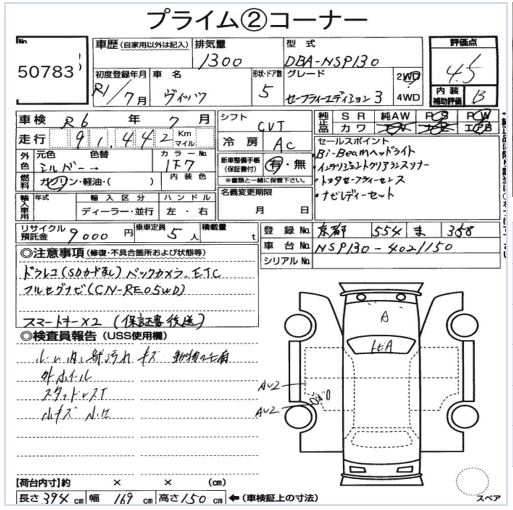 プライム②コーナー
No. 50783
車歴 (自家用以外は記入)
排気量 1300
型式 DBA-NSP130
評価点 4.5
初度登録年月 R1/7月
車名 ヴィッツ
形状・ドア数 5
グレード セーフティーエディション3
2WD
4WD
内装補助評価 B
車検 R6年7月
走行 91,442 Km マイル
シフト CVT
冷房 AC
純正品 SR 純AW PS PW
カワ エアB
外色 元色 色替 シルバー
カラーNo. 1F7
燃料 ガソリン・軽油・( )
内装色
新車整備手帳(保証書付) 有・無
※書類と一緒に保管下さい。
セールスポイント
・Bi-Beamヘッドライト
・インテリジェントクリアランスソナー
・トヨタセーフティーセンス
・ナビレディーセット
輸入車用 年式
輸入区分 ハンドル
ディーラー・並行 左・右
名義変更期限
月 日
リサイクル預託金 9000円
乗車定員 5人
積載量 t
登録No. 京都 554 ま 358
車台No. NSP130-4021150
シリアルNo.
◎注意事項 (修復・不具合箇所および状態等)
ドラレコ(SDカードなし) バックカメラ、ETC
フルセグナビ(CN-RE05WD)
スマートキーX2 (保証書後送)
◎検査員報告 (USS使用欄)
外ホイール
小キズ 小凹
A
AU2
AU2
スペア
【荷台内寸】約 × × (cm)
長さ 394 cm 幅 169 cm 高さ 150 cm ←(車検証上の寸法)